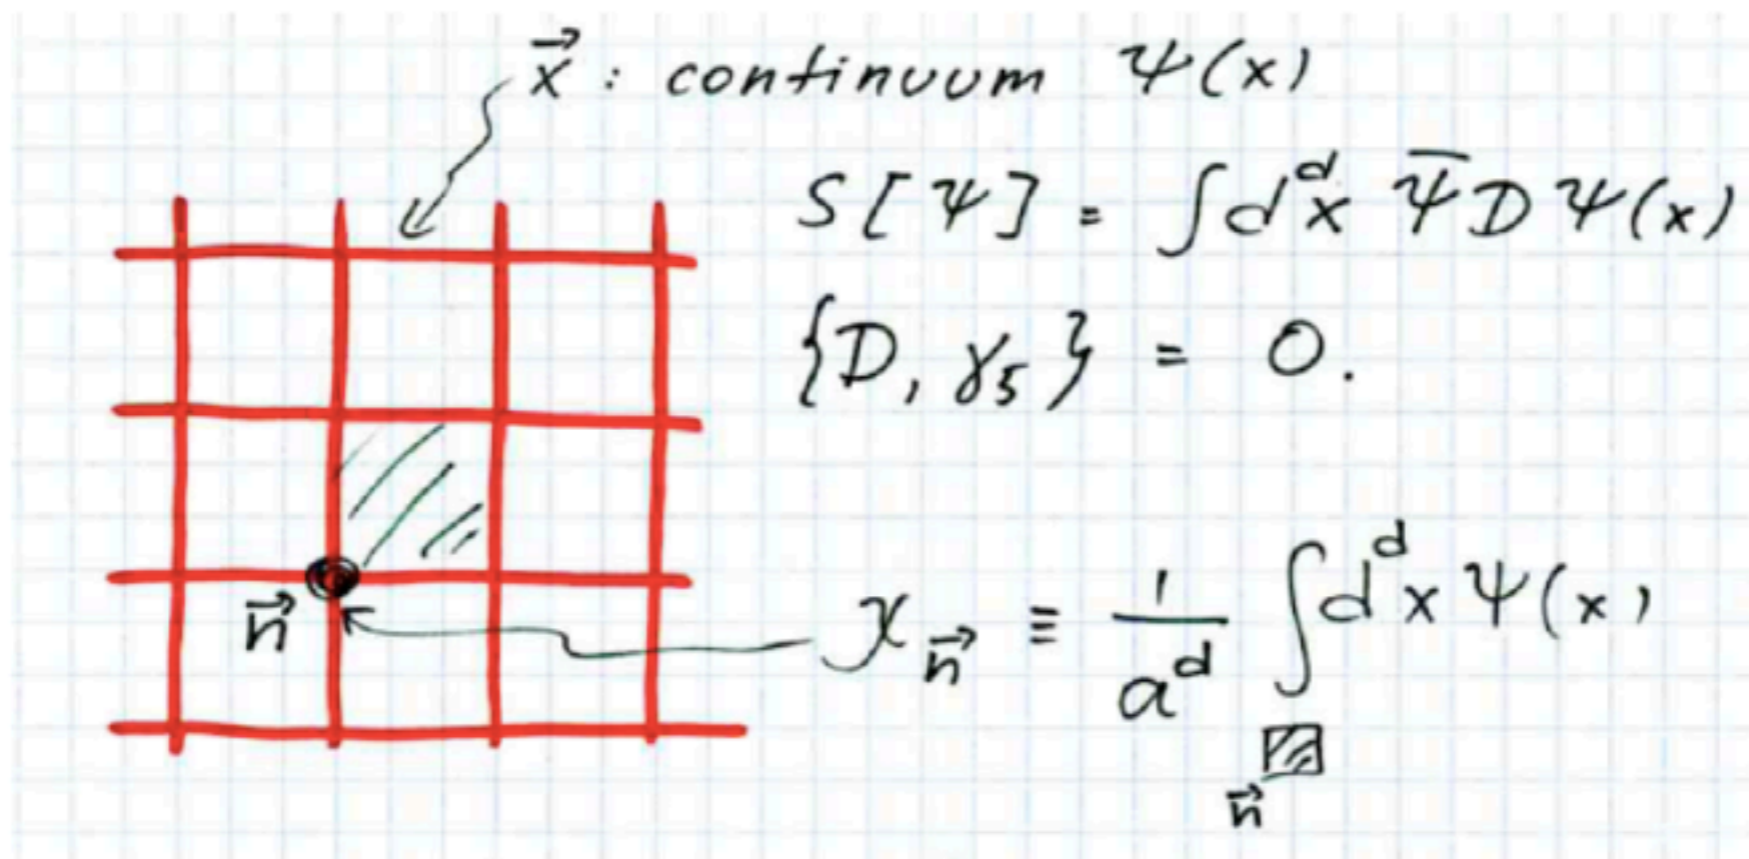 x⃗ : continuum ψ(x)
S[ψ] = ∫dᵈx ψ̄Dψ(x)
{D, γ₅} = 0.
n⃗
χ_n⃗ ≡ 1/aᵈ ∫dᵈx ψ(x)
n⃗